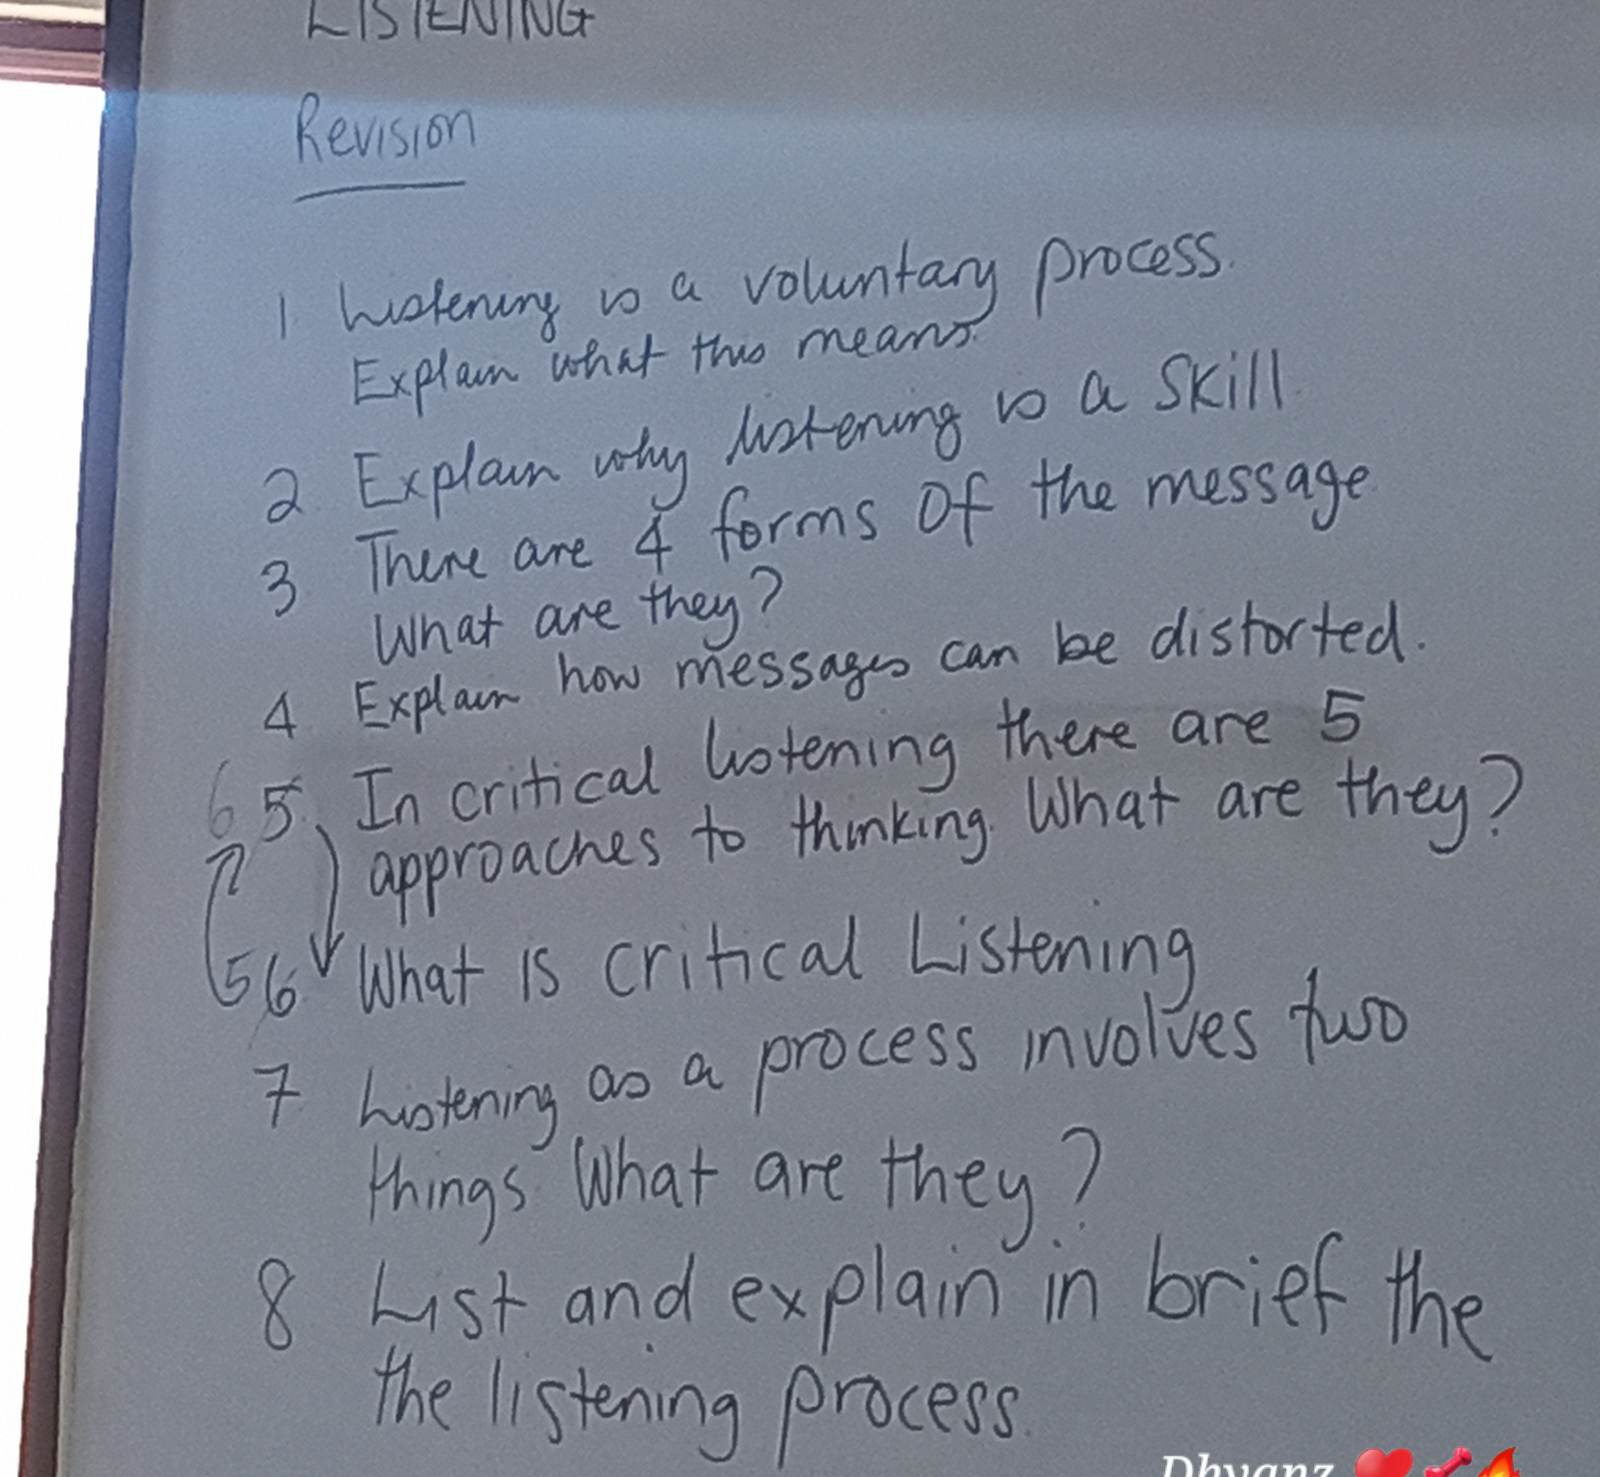 LISTENING
Revision
1. Listening is a voluntary process.
Explain what this means.
2. Explain why listening is a skill
3 There are 4 forms of the message
What are they?
4 Explain how messages can be distorted.
6 5. In critical listening there are 5
approaches to thinking. What are they?
5 6. What is critical Listening
7 Listening as a process involves two
things What are they?
8 List and explain in brief the
the listening process.
Dhyanz ❤️